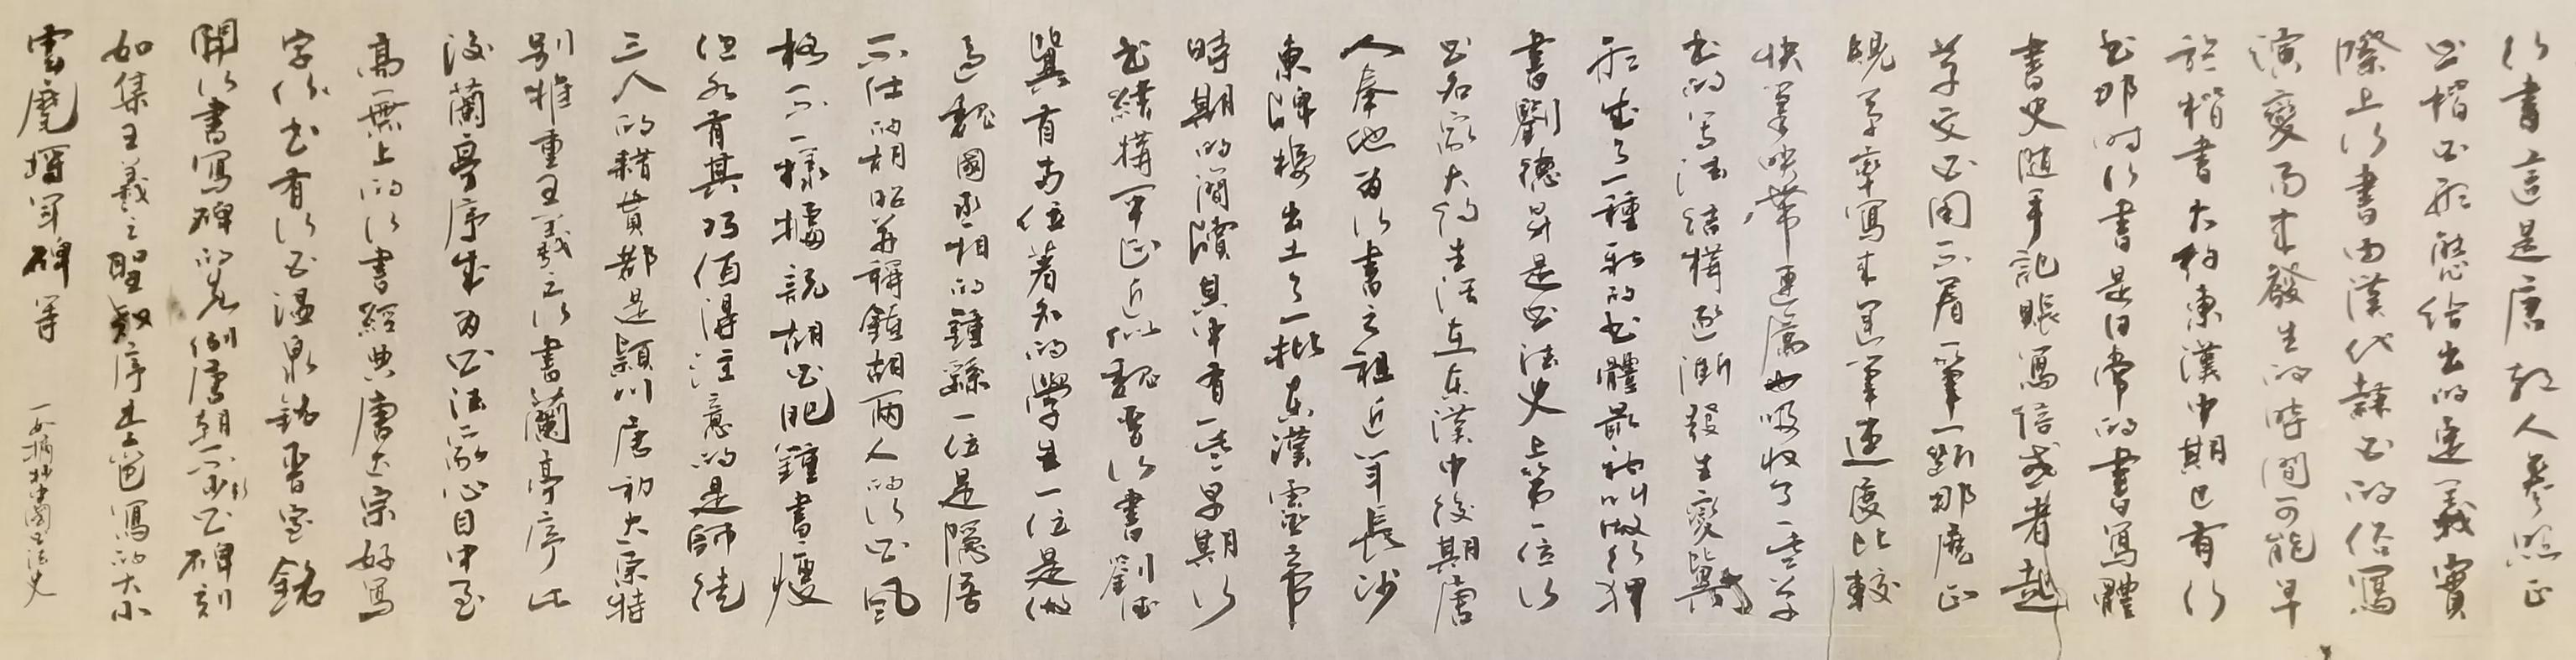 行書這是唐朝人參照正
書楷書形態給出的定義實
際上行書由漢代隸書的俗寫
演變而來發生的時間可能早
於楷書大約東漢中期已有行
書那时行書是日常的書寫體
書史隨手記賬寫信或者起
草文書用不着一筆一劃那麽正
規草率寫來運筆速度比較
快筆畫映帶連屬也吸收了一些草
書的写法結構逐漸發生變異
形成了一種新的書體最初叫做行狎
書劉德昇是書法史上第一位行
書名家大约生活在东漢中後期唐
人奉他为行書之祖近年長沙
東牌樓出土了一批东漢靈帝
時期的簡牘其中有一些早期行
書結構平正近似魏晋行書劉德
昇有两位著名的學生一位是做
過魏國丞相的鍾繇一位是隱居
不仕的胡昭并稱鍾胡兩人的行書風
格不一樣據說胡書肥鍾書瘦
但各有其巧值得注意的是師徒
三人的籍貫都是潁川唐初太宗特
别推重王羲之行書蘭亭序此
後蘭亭序成为書法家心目中至
高無上的行書經典唐太宗好寫
字行书有行書温泉銘晋祠銘
開行書寫碑的先例唐朝不少行書碑刻
如集王羲之聖教序李邕寫的大小
雲麾將军碑等
一女摘抄中國書法史